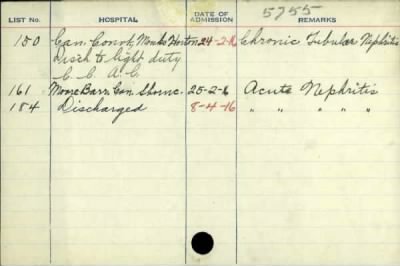 5755
LIST No. HOSPITAL DATE OF ADMISSION REMARKS
150 Can. Conv't, Monks Horton 24-2-16 Chronic Tubular Nephritis
Disch to light duty
C. C. A. C.
161 Moore Barr. Can. Shorne. 25-2-6 Acute Nephritis
184 Discharged 8-4-16 " " " "